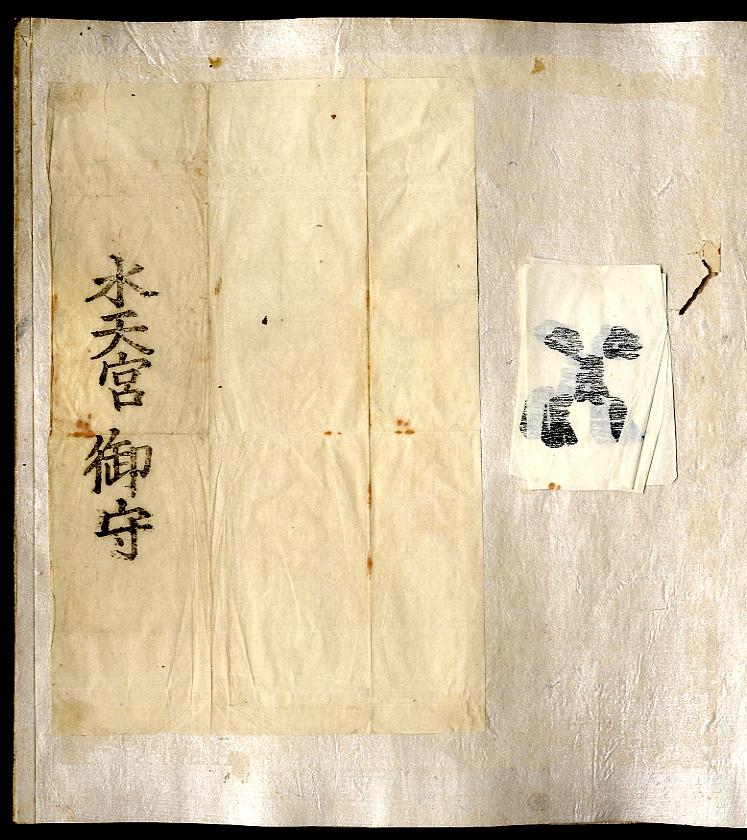 水天宮 御守